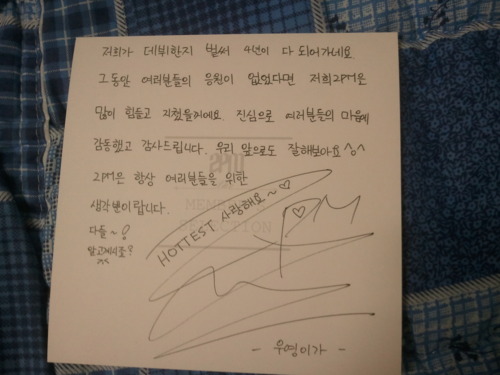 저희가 데뷔한지 벌써 4년이 다 되어가네요.
그동안 여러분들의 응원이 없었다면 저희2PM은
많이 힘들고 지쳤을거에요. 진심으로 여러분들의 마음에
감동했고 감사드립니다. 우리 앞으로도 잘해보아요^o^
2PM은 항상 여러분들을 위한
생각뿐이랍니다.
다들~
알고계시죠?
HOTTEST 사랑해요~♡
2PM
- 우영이가 -